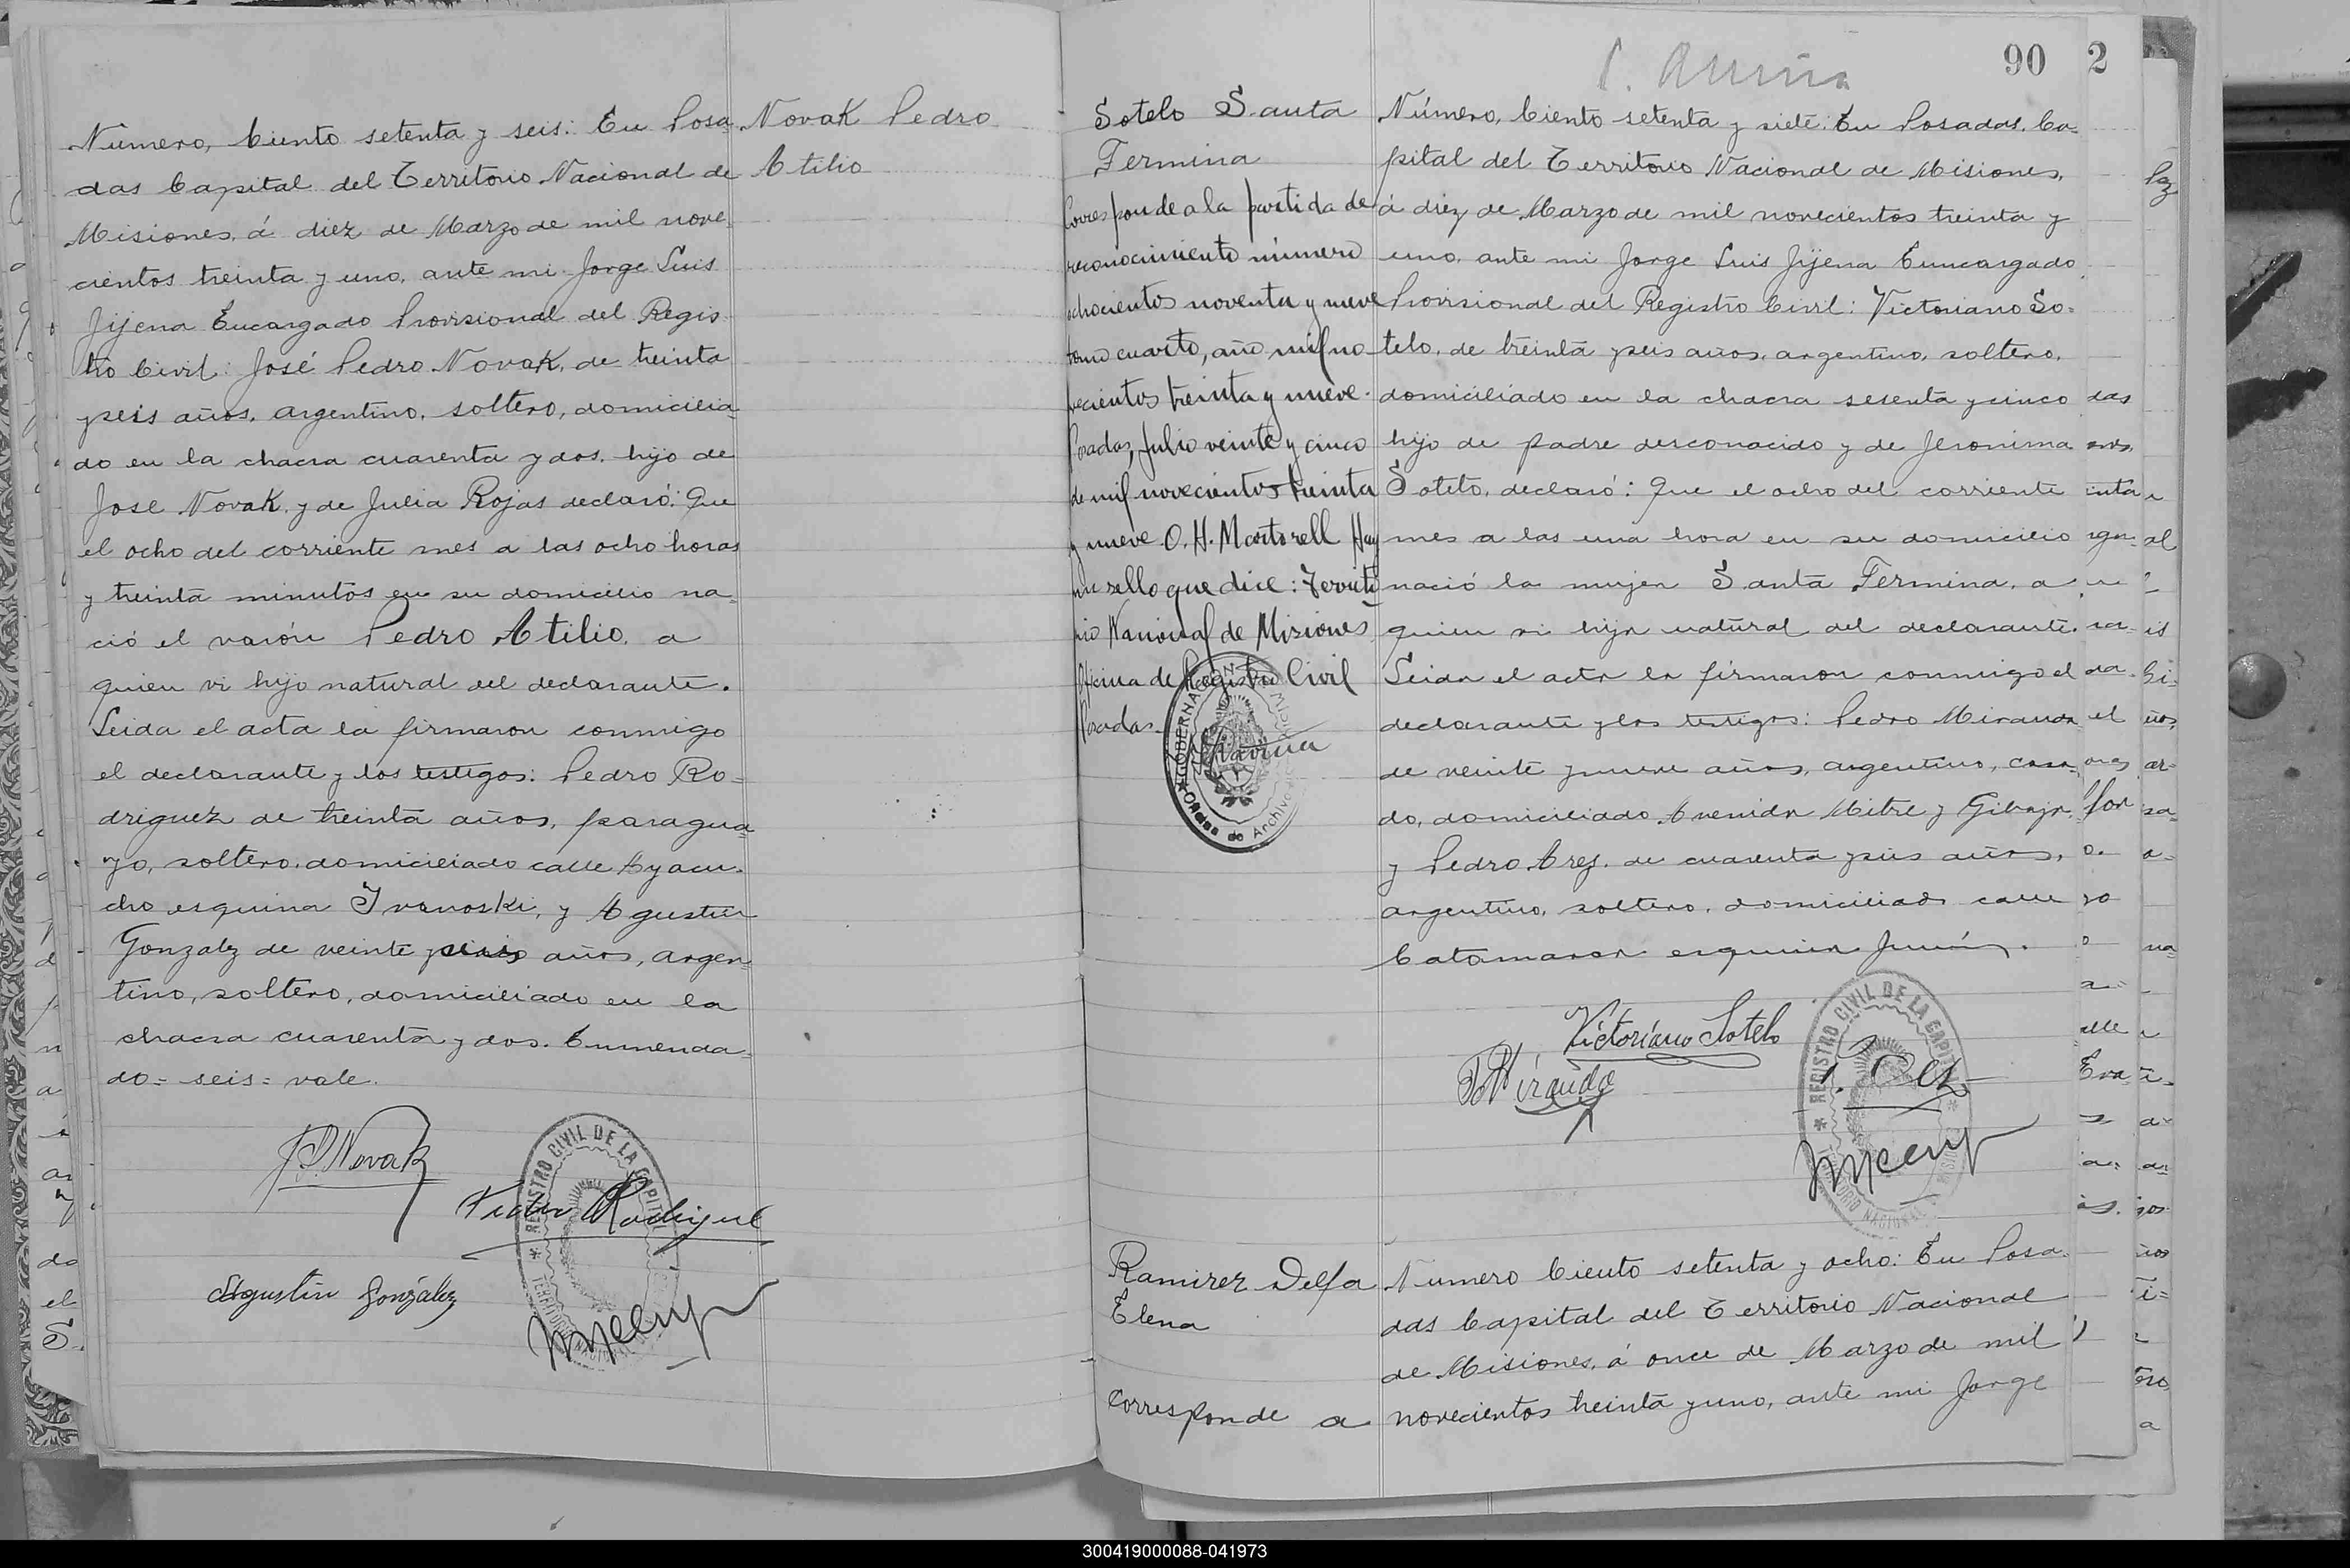 Número, Ciento setenta y seis: En Posa-
das Capital del Territorio Nacional de
Misiones, á diez de Marzo de mil nove-
cientos treinta y uno, ante mi Jorge Luis
Jijena Encargado Provisional del Regis-
tro Civil: José Pedro Novak, de treinta
y seis años, argentino, soltero, domicilia-
do en la chacra cuarenta y dos, hijo de
Jose Novak y de Julia Rojas declaró: Que
el ocho del corriente mes a las ocho horas
y treinta minutos en su domicilio na-
ció el varón Pedro Atilio, a
quien vi hijo natural del declarante.
Leida el acta la firmaron conmigo
el declarante y los testigos: Pedro Ro-
driguez de treinta años, paragua-
yo, soltero, domiciliado calle Ayacu-
cho esquina Ivanoski, y Agustin
Gonzalez de veinte y seis años, argen-
tino, soltero, domiciliado en la
chacra cuarenta y dos. Enmenda-
do = seis = vale.
J.P. Novak
Pedro Rodriguez
Agustin González
REGISTRO CIVIL DE LA CAPITAL
TERRITORIO NACIONAL
Novak Pedro
Atilio
90 2
Sotelo Santa
Fermina
Corresponde a la partida de
reconocimiento número
ochocientos noventa y nueve
tomo cuarto, año mil no-
vecientos treinta y nueve.
Posadas, Julio veinte y cinco
de mil novecientos treinta
y nueve. O. H. Martorell Hay
un sello que dice: Territo-
rio Nacional de Misiones
Oficina de Registro Civil
Posadas.
GOBERNACION
Oficina de Archivo
Número, Ciento setenta y siete: En Posadas, Ca-
pital del Territorio Nacional de Misiones,
á diez de Marzo de mil novecientos treinta y
uno, ante mi Jorge Luis Jijena Euncargado
Provisional del Registro Civil: Victoriano So-
telo, de treinta y seis años, argentino, soltero,
domiciliado en la chacra sesenta y cinco
hijo de padre desconocido y de Jeronima
Sotelo, declaró: Que el ocho del corriente
mes a las una hora en su domicilio
nació la mujer Santa Fermina, a
quien vi hija natural del declarante.
Leida el acta la firmaron conmigo el
declarante y los testigos: Pedro Miranda
de veinte y nueve años, argentino, casa-
do, domiciliado Avenida Mitre y Gibaja,
y Pedro Arez, de cuarenta y seis años,
argentino, soltero, domiciliado calle
Catamarca esquina Junín.
Victoriano Sotelo
P. Miranda
REGISTRO CIVIL DE LA CAPITAL
TERRITORIO NACIONAL
Ramirez Delfa
Elena
Corresponde a
Numero Ciento setenta y ocho: En Posa-
das Capital del Territorio Nacional
de Misiones, á once de Marzo de mil
novecientos treinta y uno, ante mi Jorge
300419000088-041973